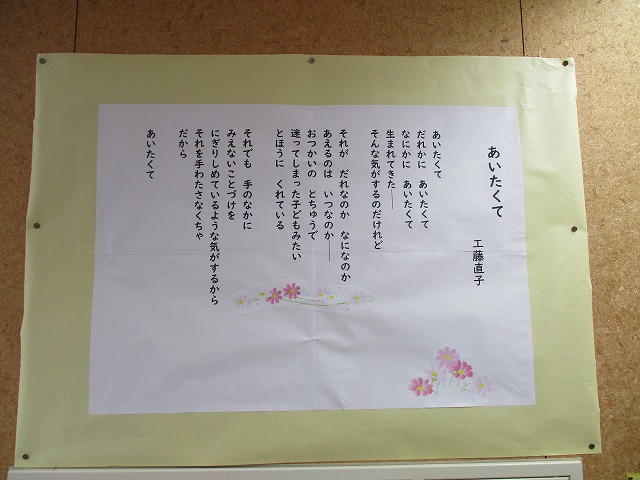 あいたくて
工藤直子
あいたくて
だれかに　あいたくて
なにかに　あいたくて
生まれてきた――
そんな気がするのだけれど
それが　だれなのか　なになのか
あえるのは　いつなのか――
おつかいの　とちゅうで
迷ってしまった子どもみたい
とほうに　くれている
それでも　手のなかに
みえないことづけを
にぎりしめているような気がするから
それを手わたさなくちゃ
だから
あいたくて